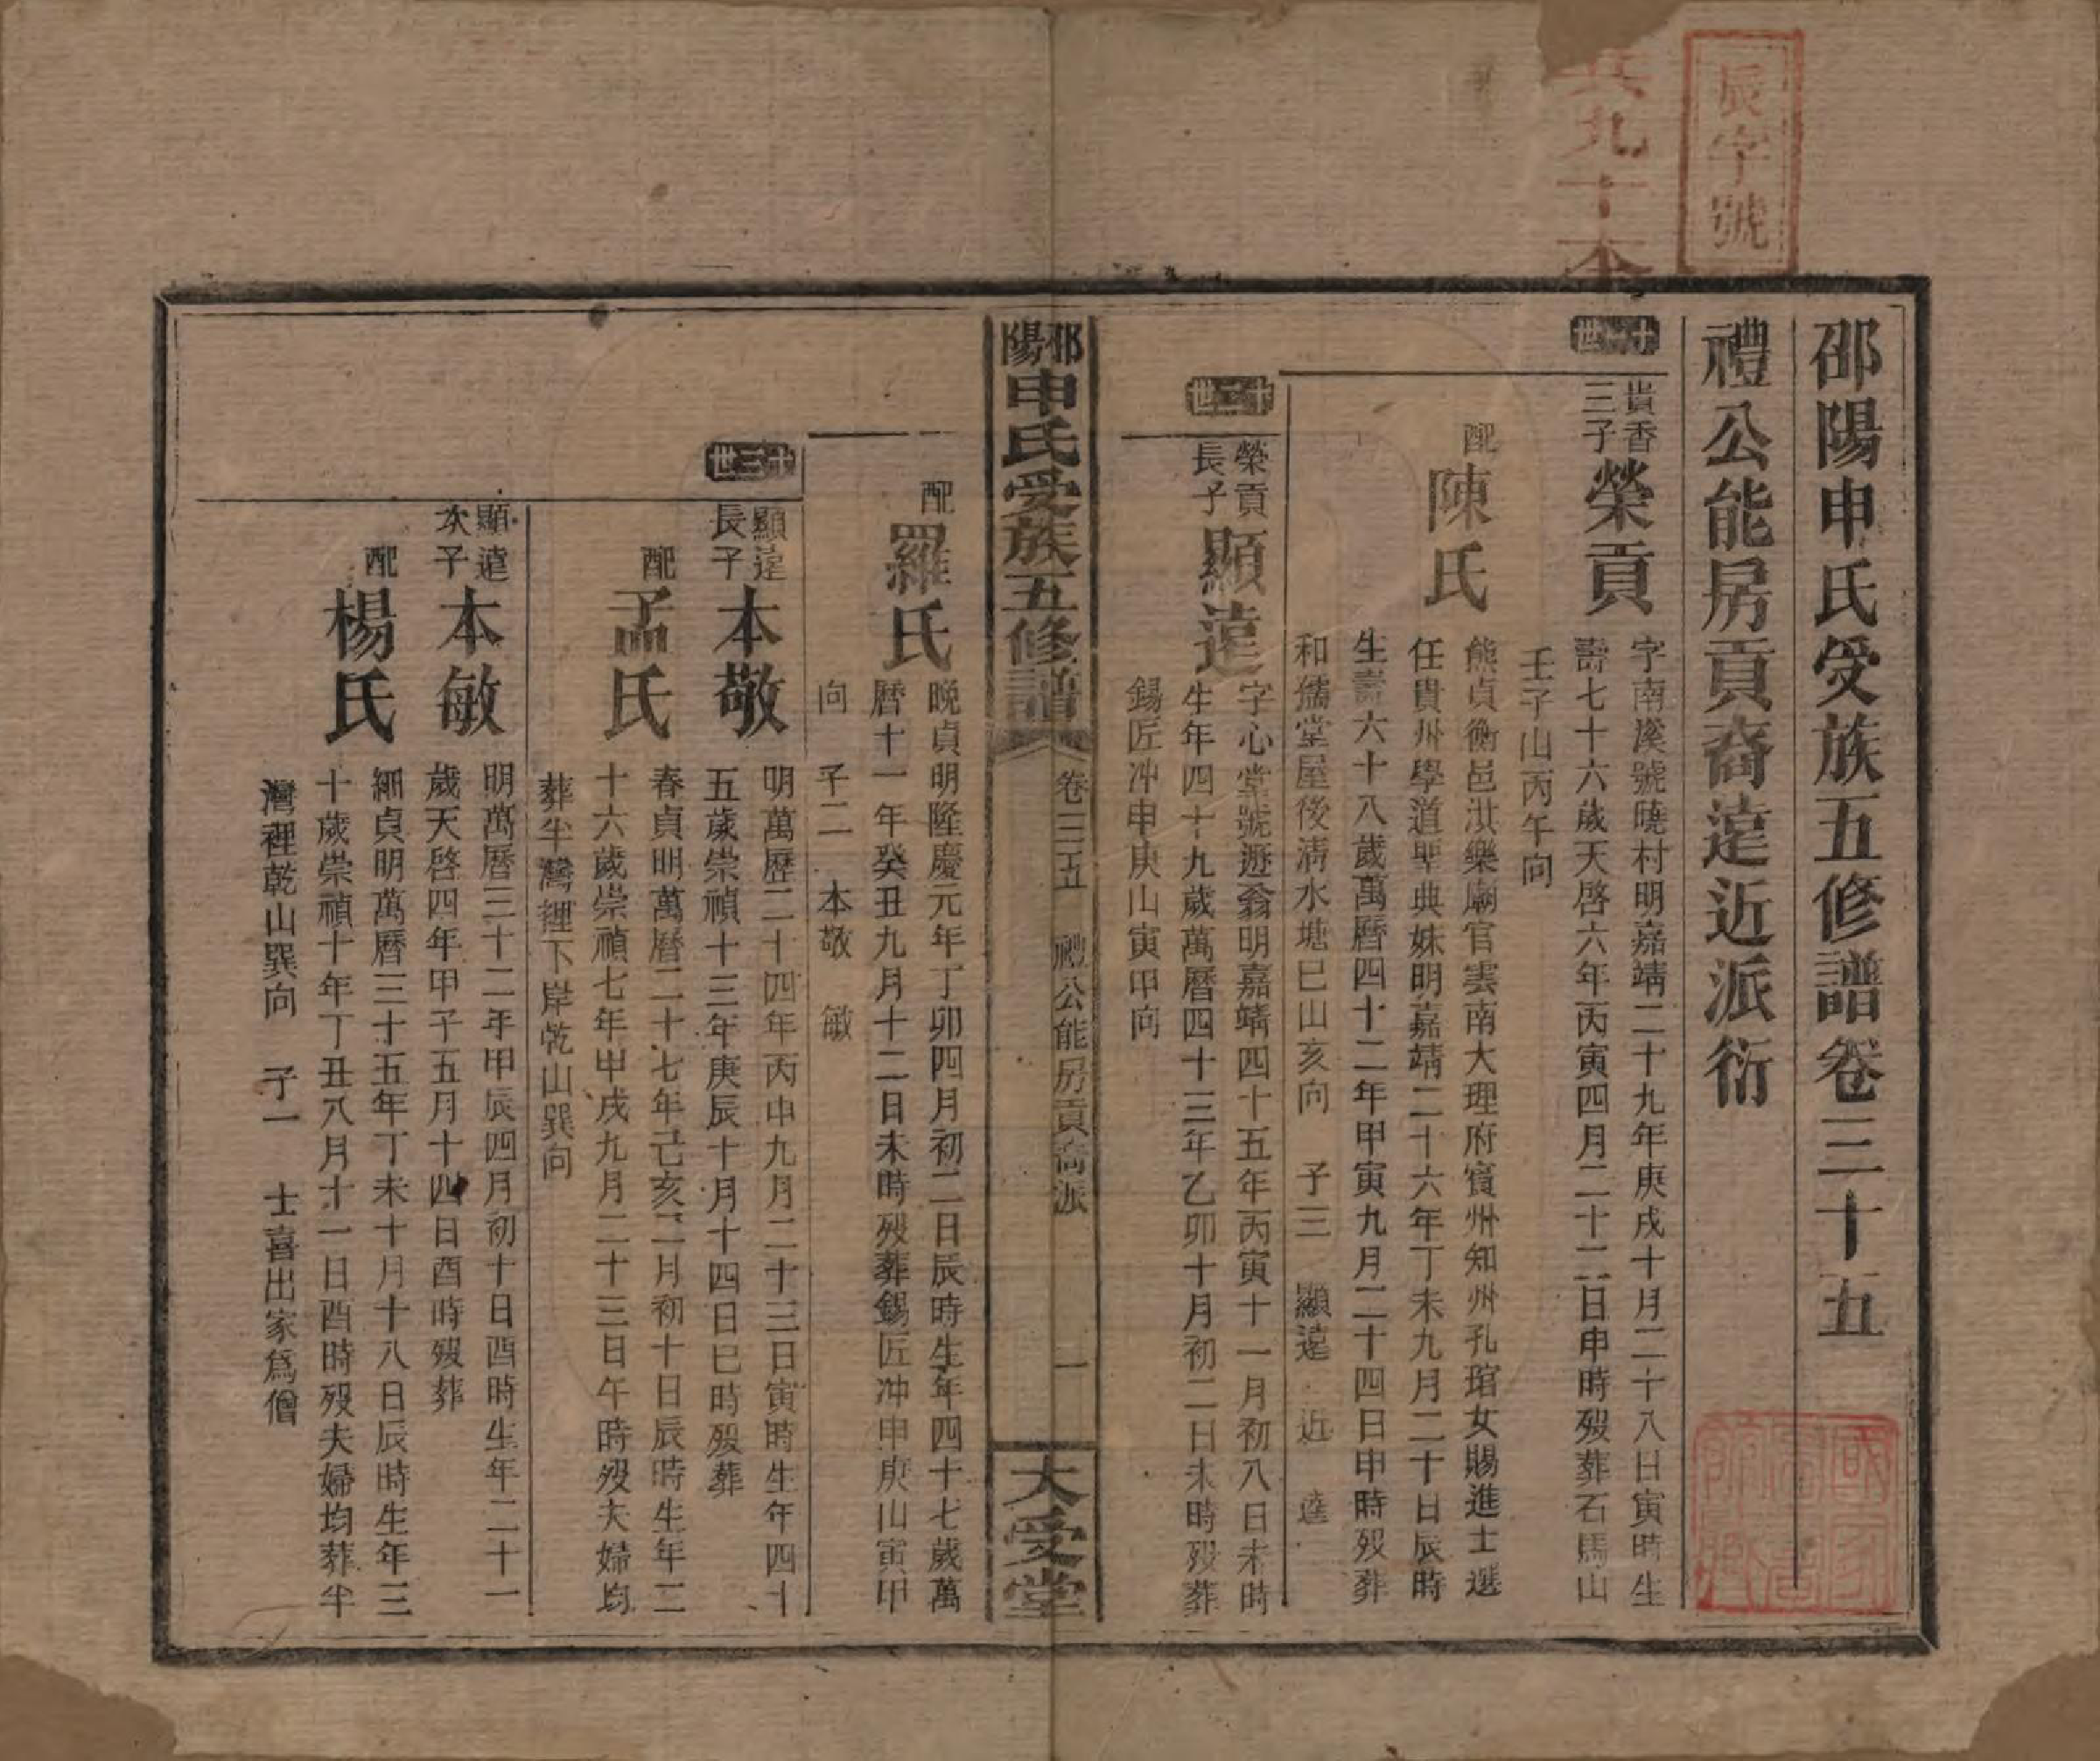 辰字號
共九十本
邵陽申氏受族五修譜卷三十五
禮公能房貢裔遠近派衍
十一世
貴香三子
榮貢
字南溪號曉村明嘉靖二十九年庚戌十月二十八日寅時生
壽七十六歲天啓六年丙寅四月二十二日申時歿葬石馬山
壬子山丙午向
配
陳氏
熊貞衡邑洪樂廟官雲南大理府賓州知州孔瑄女賜進士選
任貴州學道聖典妹明嘉靖二十六年丁未九月二十日辰時
生壽六十八歲萬曆四十二年甲寅九月二十四日申時歿葬
和儒堂屋後清水塘巳山亥向 子三 顯遠 近 達
十二世
榮貢長子
顯遠
字心堂號遊翁明嘉靖四十五年丙寅十一月初八日未時
生年四十九歲萬曆四十三年乙卯十月初二日未時歿葬
錫匠冲申庚山寅甲向
邵陽申氏受族五修譜
卷三五
禮公能房貢裔派
一
大受堂
配
羅氏
晚貞明隆慶元年丁卯四月初二日辰時生年四十七歲萬
曆十一年癸丑九月十二日未時歿葬錫匠冲申庚山寅甲
向 子二 本敬 敏
十三世
顯遠長子
本敬
明萬歷二十四年丙申九月二十三日寅時生年四十
五歲崇禎十三年庚辰十月十四日巳時歿葬
配
孟氏
春貞明萬曆二十七年己亥二月初十日辰時生年三
十六歲崇禎七年甲戌九月二十三日午時歿夫婦均
葬半灣裡下岸乾山巽向
顯遠次子
本敏
明萬曆三十二年甲辰四月初十日酉時生年二十一
歲天啓四年甲子五月十四日酉時歿葬
配
楊氏
細貞明萬曆三十五年丁未十月十八日辰時生年三
十歲崇禎十年丁丑八月十一日酉時歿夫婦均葬半
灣裡乾山巽向 子一 士喜出家爲僧